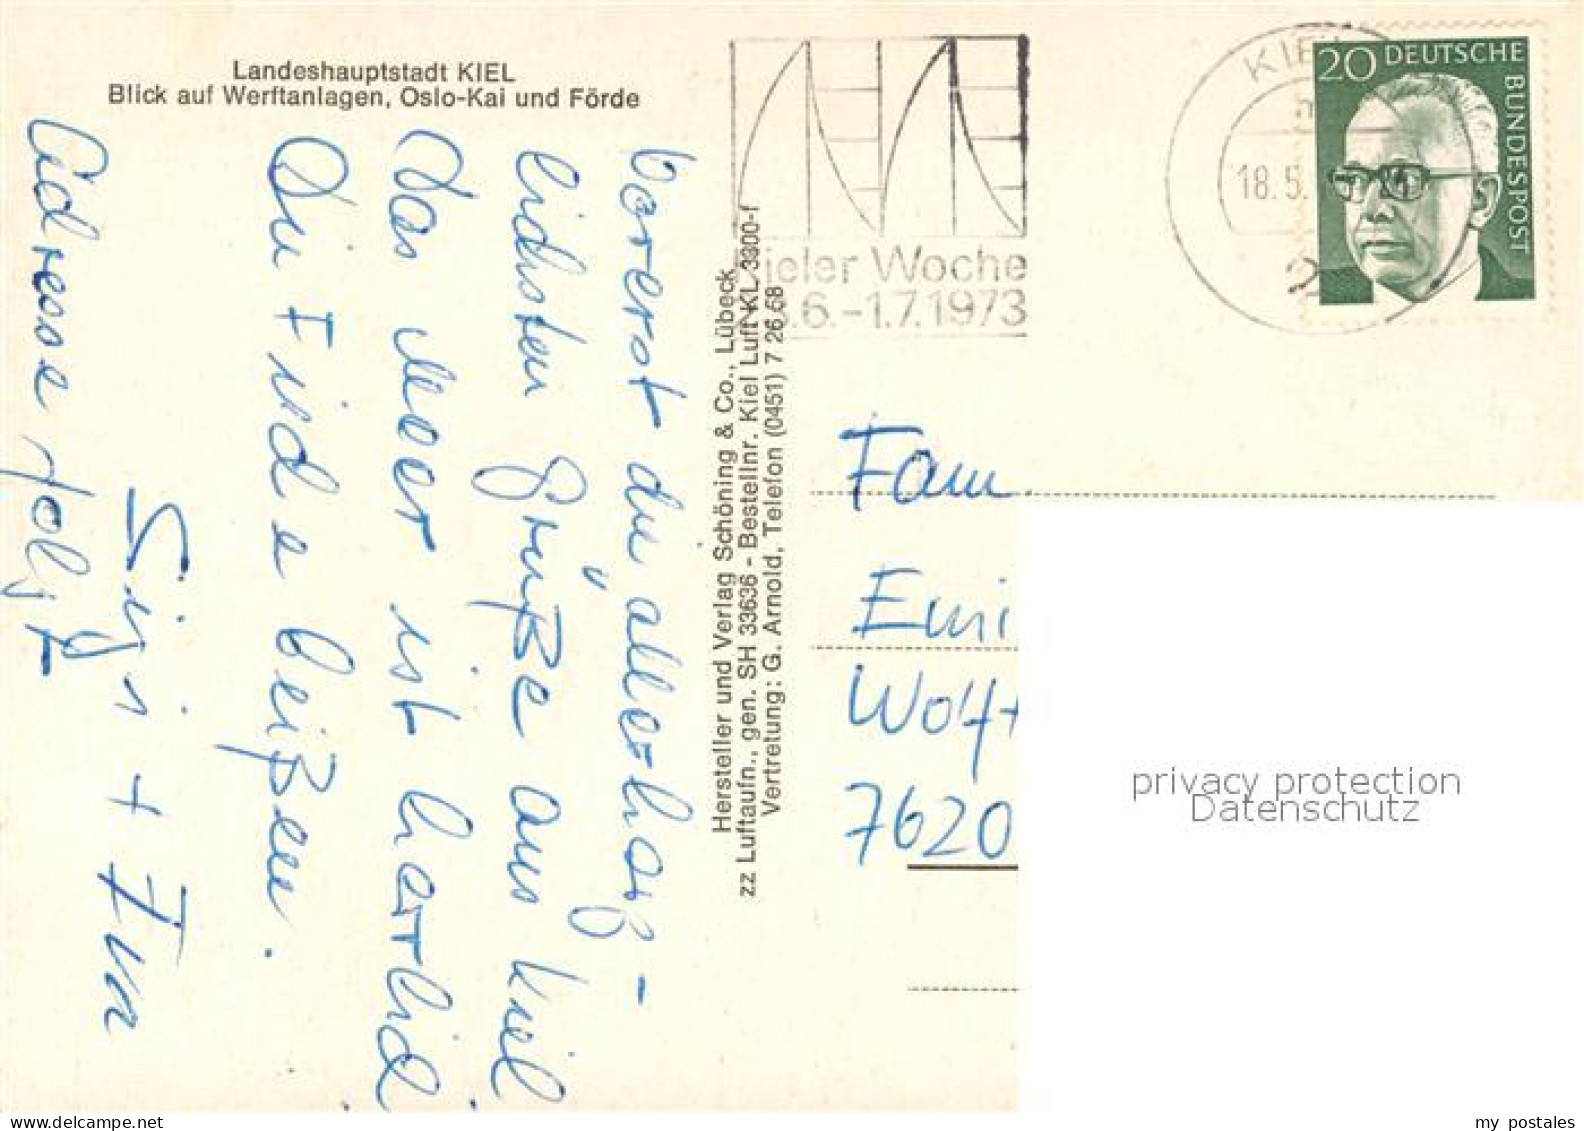 Landeshauptstadt KIEL
Blick auf Werftanlagen, Oslo-Kai und Förde
Vorerst die allerherz-
lichsten Grüße aus Kiel
Das Meer ist herrlich
Die Fische beißen.
Sigi +
Adresse folgt
Hersteller und Verlag Schöning & Co., Lübeck
zz Luftaufn., gen. SH 33636 - Bestellnr. Kiel Luft KL 3300-f
Vertretung: G. Arnold, Telefon (0451) 7 26 68
ieler Woche
.6.-1.7.1973
KIEL
18.5.
2
20 DEUTSCHE
BUNDESPOST
Fam
Emi
Wolf
7620
privacy protection
Datenschutz
delcampe.net
my postales